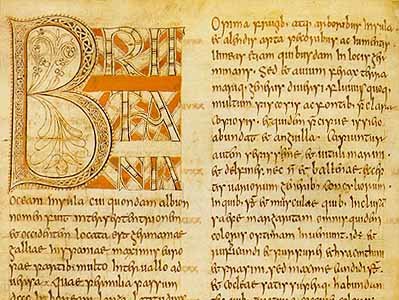 BRIT
TA
NIA
oceani insula cui quondam albion
nomen fuit inter septentrionem
et occidentem locata est germaniae
galliae hispaniae maximis euro
pae partibus multo interuallo ad
uersa. Quae per milia passuum
Opima frugib: atq: arboribus insula.
et alendis apta pecoribus ac iumentis.
uineas etiam quibusdam in locis ger
minans. Sed et auium ferax terra
mariq: generis diuersi. fluuiis quoq:
multum piscosis ac fontib: praeclara
copiosis. et quidem praecipue issicio
abundat et anguilla. Capiuntur
autem saepissime et uituli marini
et delphines. nec n̄ et ballenae. excep
tis uariorum generibus concyliorum.
in quib: s: et musculae. quib: inclusam
saepe margaritam omnis quidem
coloris optimam inueniunt. id ē: et
rubicundi et purpurei et hyacinthini
et prasini. sed maxime candidi. s:
et cocleae satis superq: habundan